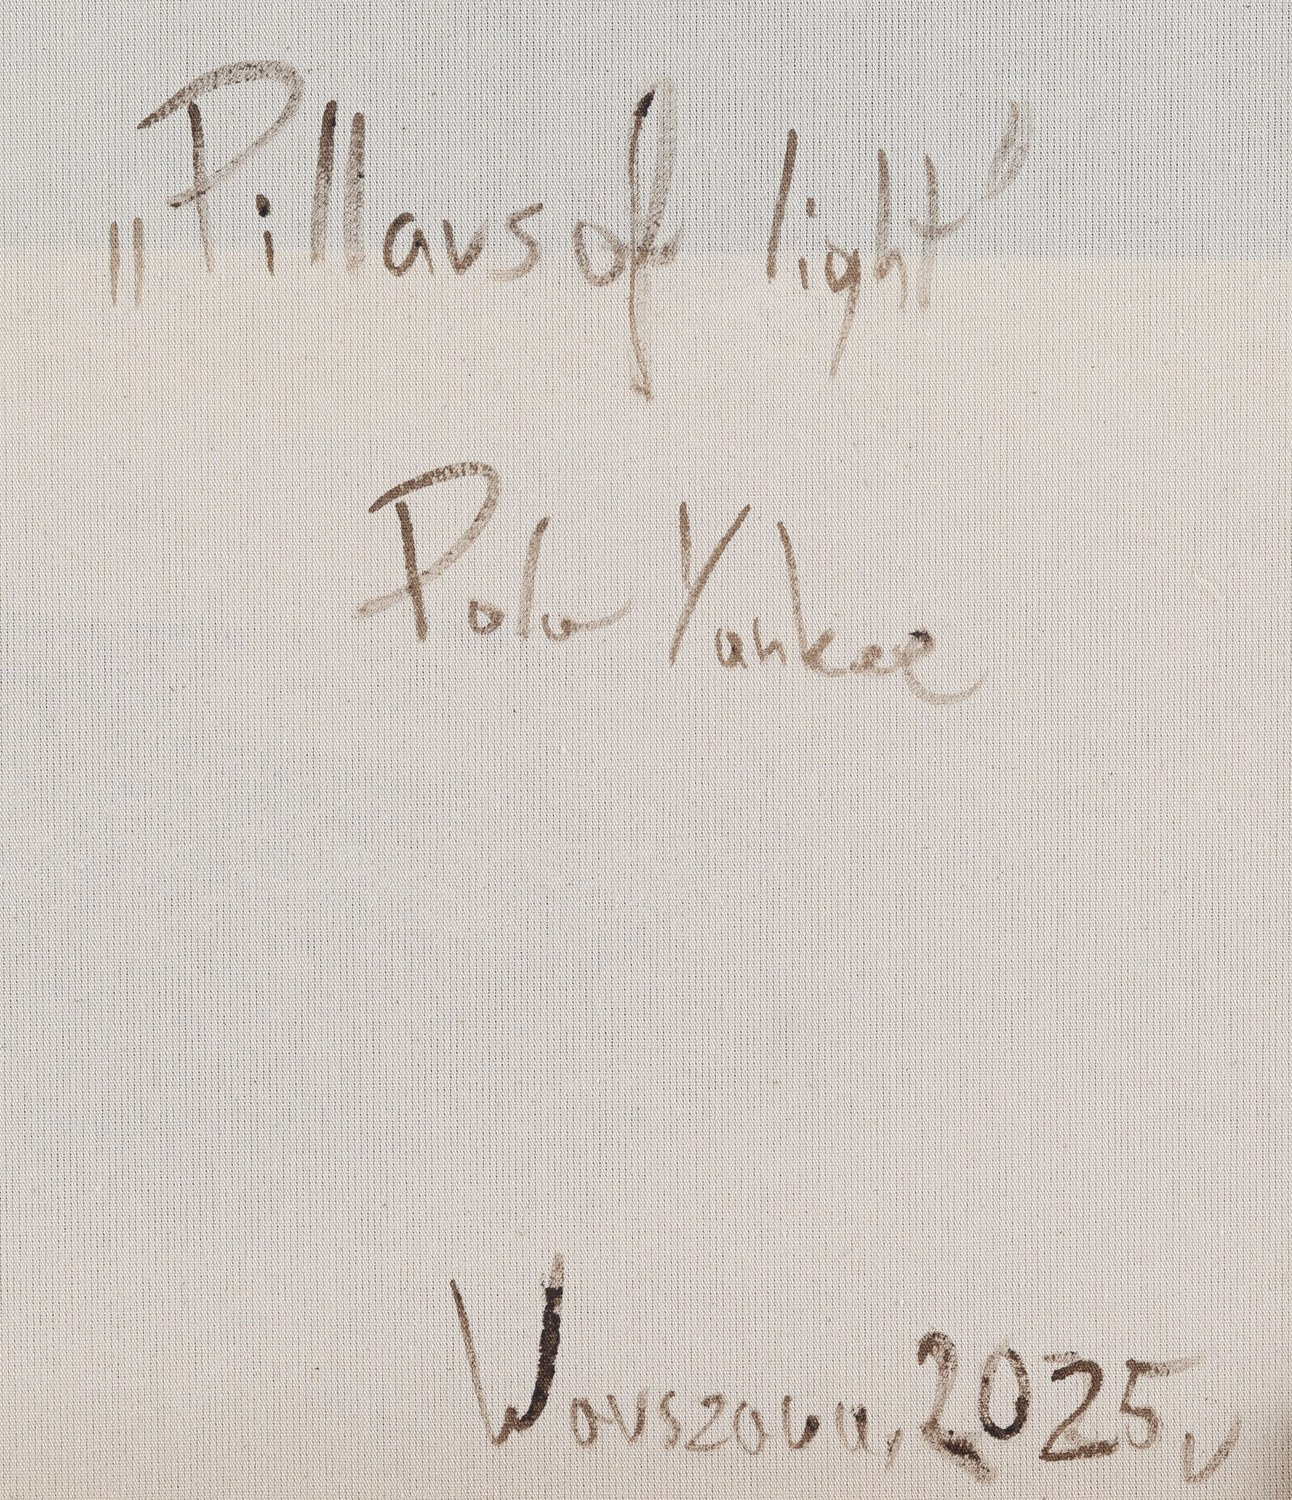 „Pillars of light”
Pola Yankee
Warszawa, 2025 r